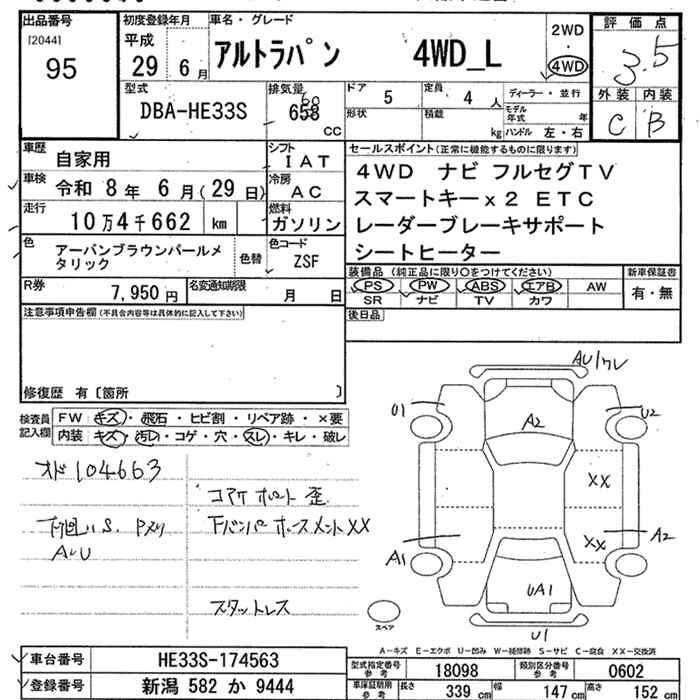 出品番号
[2044]
95
初度登録年月
平成
29 6 月
車名・グレード
アルトラパン 4WD_L
2WD
・
4WD
評価点
3.5
外装 内装
C B
型式
DBA-HE33S
排気量
658
60
CC
ドア 5
定員 4 人
形状
積載 kg
ディーラー・並行
モデル年式 年
ハンドル 左・右
車歴
自家用
車検 令和 8 年 6 月(29 日)
走行 10 万 4 千 662 km
シフト
IAT
冷房
AC
燃料
ガソリン
色
アーバンブラウンパールメ
タリック
色替
色コード
ZSF
R券
7,950 円
名変通知期限
月 日
セールスポイント(正常に機能するものに限ります)
4WD ナビ フルセグTV
スマートキーx2 ETC
レーダーブレーキサポート
シートヒーター
装備品(純正品に限り○をつけてください)
PS PW ABS エアB AW
SR ナビ TV カワ
新車保証書
有・無
後日品
注意事項申告欄(不具合内容等は具体的に記入して下さい)
修復歴 有〔箇所 〕
検査員
記入欄
FW キズ・飛石・ヒビ割・リペア跡・×要
内装 キズ・汚レ・コゲ・穴・スレ・キレ・破レ
オド 104663
コアサポート歪
下廻り S.
AUU
Fバンパーホースメント XX
スタットレス
AU1
U1
U2
A2
XX
XX
A1
A2
UA1
U1
スペア
A-キズ E-エクボ U-凹み W-補修跡 S-サビ C-腐食 XX-交換済
車台番号 HE33S-174563
登録番号 新潟 582 か 9444
型式指定番号
参考
18098
類別区分番号
参考
0602
車庫証明用
参考
長さ 339 cm
幅 147 cm
高さ 152 cm